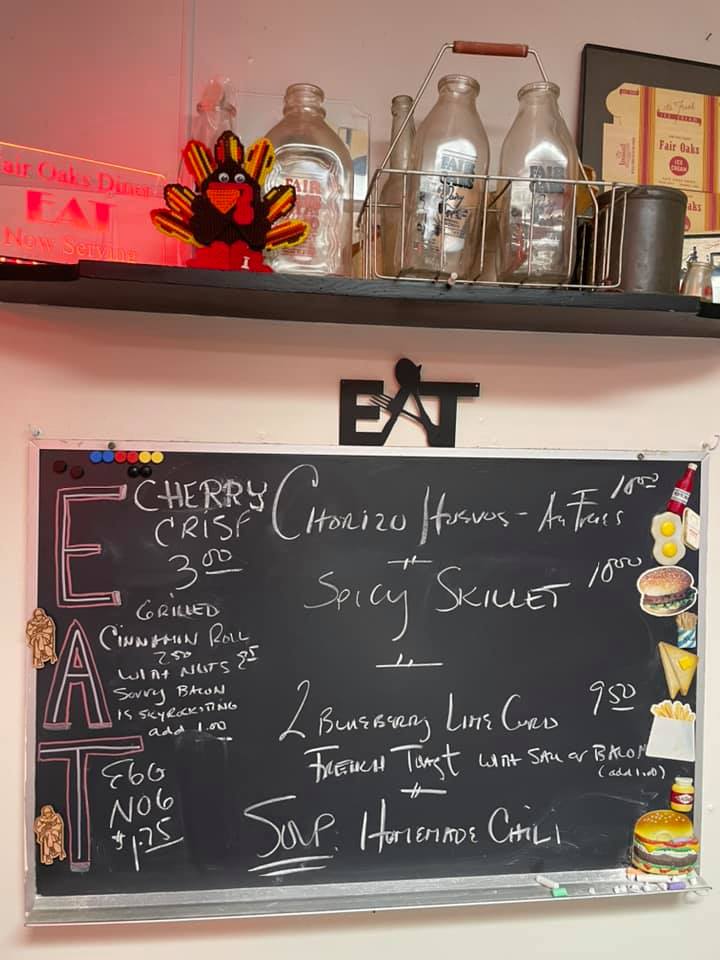 Fair Oaks Diner
EAT
Now Serving
FAIR OAKS
FAIR OAKS
FAIR OAKS
ICE CREAM
Fair Oaks
ICE CREAM
EAT
EAT
CHERRY
CRISP
3.00
GRILLED
CINNAMIN ROLL
2.50
WITH NUTS
SORRY BACON
IS SKYROCKITING
add 1.00
EGG
NOG
$1.75
CHORIZO HUEVOS -
10.00
SPICY SKILLET 10.00
2 BLUEBERRY LIME CURD 9.50
FRENCH TOAST WITH SAU or BACON
(add 1.00)
SOUP: HOMEMADE CHILI